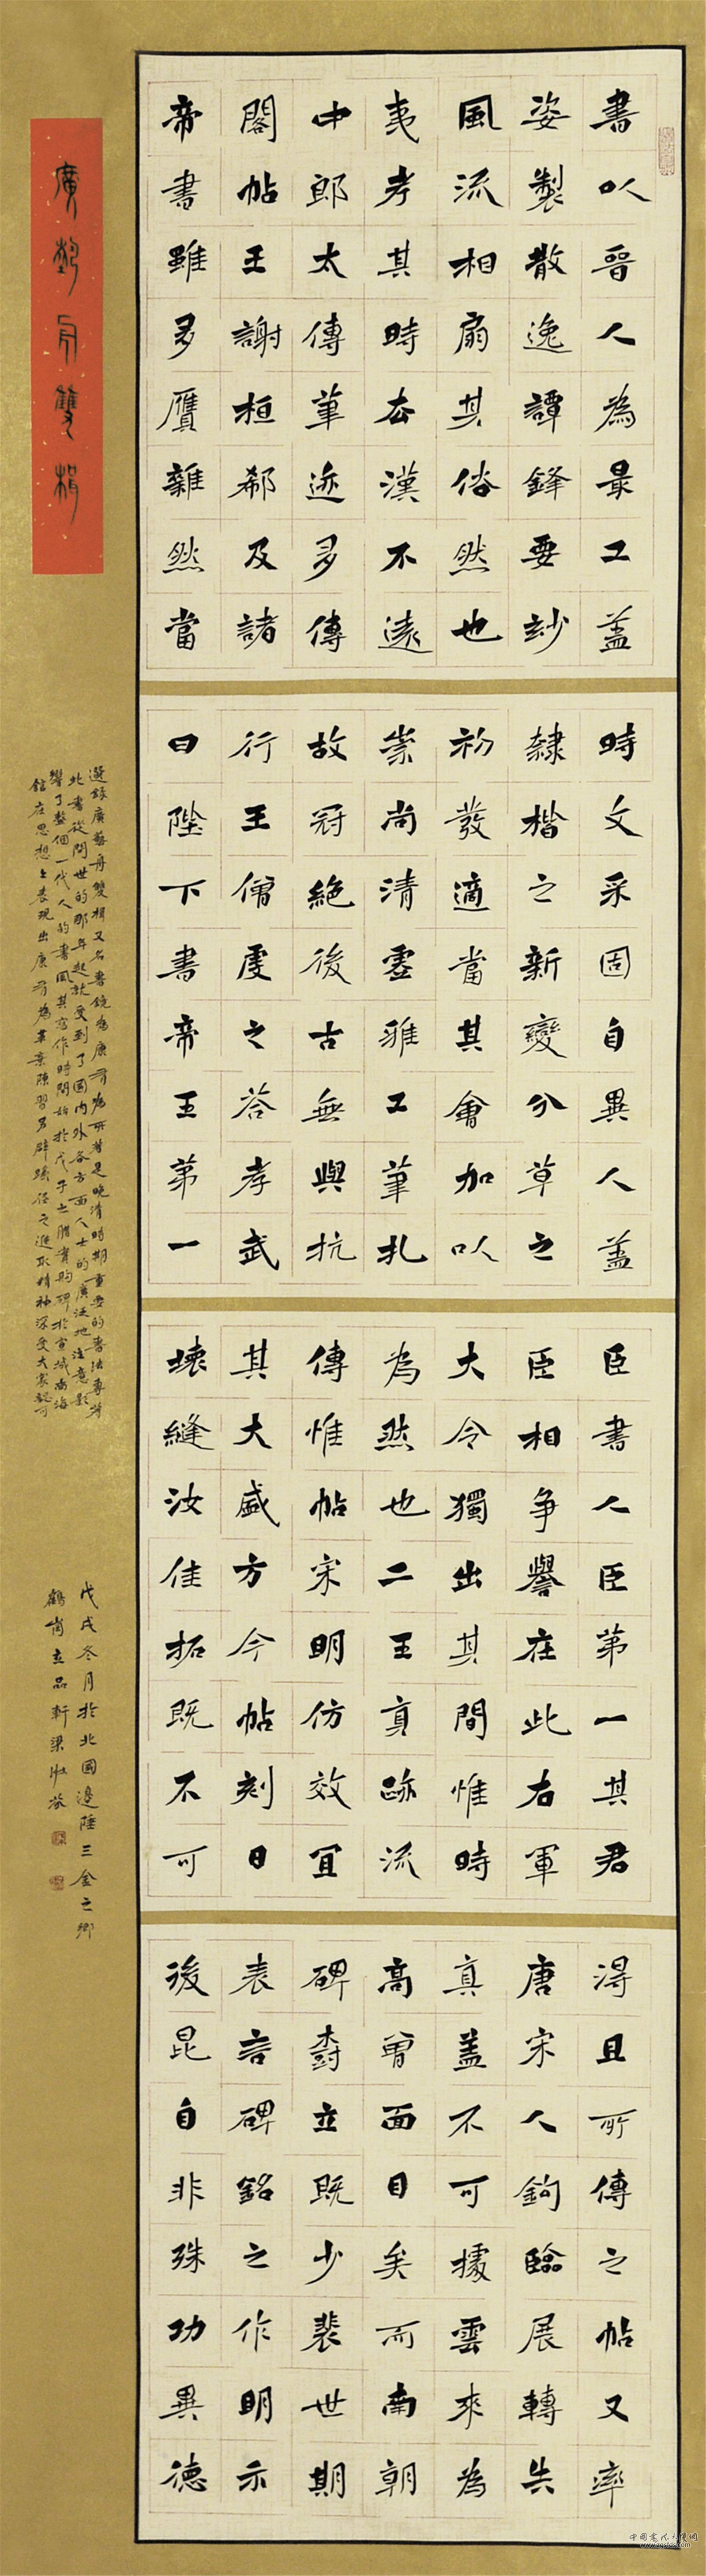 書以晉人為最工蓋
姿製散逸譚鋒要妙
風流相扇其俗然也
夷考其時去漢不遠
中郎太傅筆迹多傳
閣帖王謝桓郗及諸
帝書雖多贋雜然當
時文采固自異人蓋
隸楷之新變分草之
初發適當其會加以
崇尚清虛雅工筆札
故冠絕後古無與抗
行王僧虔之答孝武
曰陛下書帝王第一
臣書人臣第一其君
臣相争譽在此右軍
大令獨出其間惟時
為然也二王真跡流
傳惟帖宋明仿效宜
其大盛方今帖刻日
壞縫汝佳拓既不可
得且所傳之帖又率
唐宋人鉤臨展轉失
真蓋不可據雲來為
高曾面目矣而南朝
碑樹立既少裴世期
表言碑銘之作明示
後昆自非殊功異德
廣藝舟雙楫
選録廣藝舟雙楫又名書鏡為康有為所著是晚清時期重要的書法專著
此書從問世的那年起就受到了國内外各方面人士的廣泛地注意影
響了整個一代人的書風其寫作時間始於戊子之臘實購碑於宣城南海
館在思想上表現出康有為革棄陳習另辟蹊徑之進取精神深受大家認可
戊戌冬月於北國邊陲三金之鄉
鶴崗立品軒梁